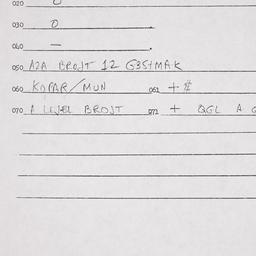 020 0
030 0
040 — .
050 A2A BROJT 12 G35+MAK
060 KOPAR/MUN 061 + #
070 A LEJEL BROJT 071 + QGL A